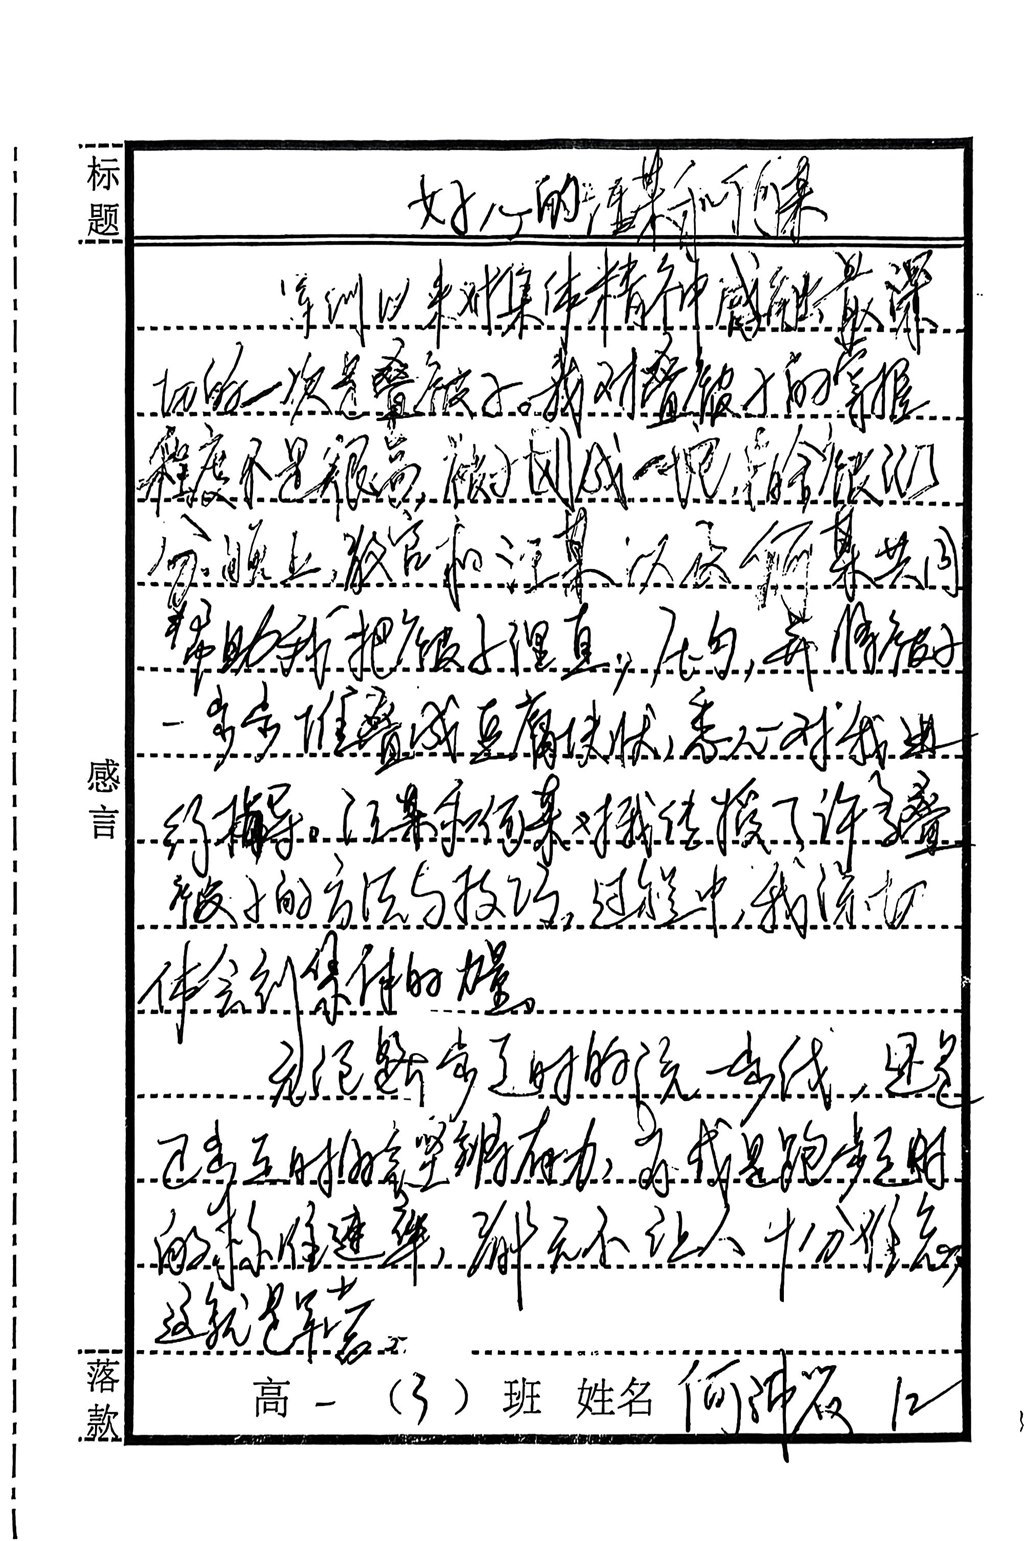 标题
好心的汪某和何某
军训以来对集体精神感触最深
切的一次是叠被子。我对叠被子的掌握
程度不是很高,被子团成一把,宿舍被
上,教官和汪某以及何某共同
帮助我把被子理直,压匀,并将被子
一步步堆叠成豆腐块状,悉心对我进
行辅导。汪某和何某对我传授了许多叠
被子的方法与技巧,过程中,我深切
体会到集体的力量。
感言
无论是齐步走时的统一步伐,还是
正步走时的坚强有力,亦或是跑步走时
的标准速率,都无不让人十分难忘,
这就是军营。
落款
高一(3)班 姓名 何沛 12